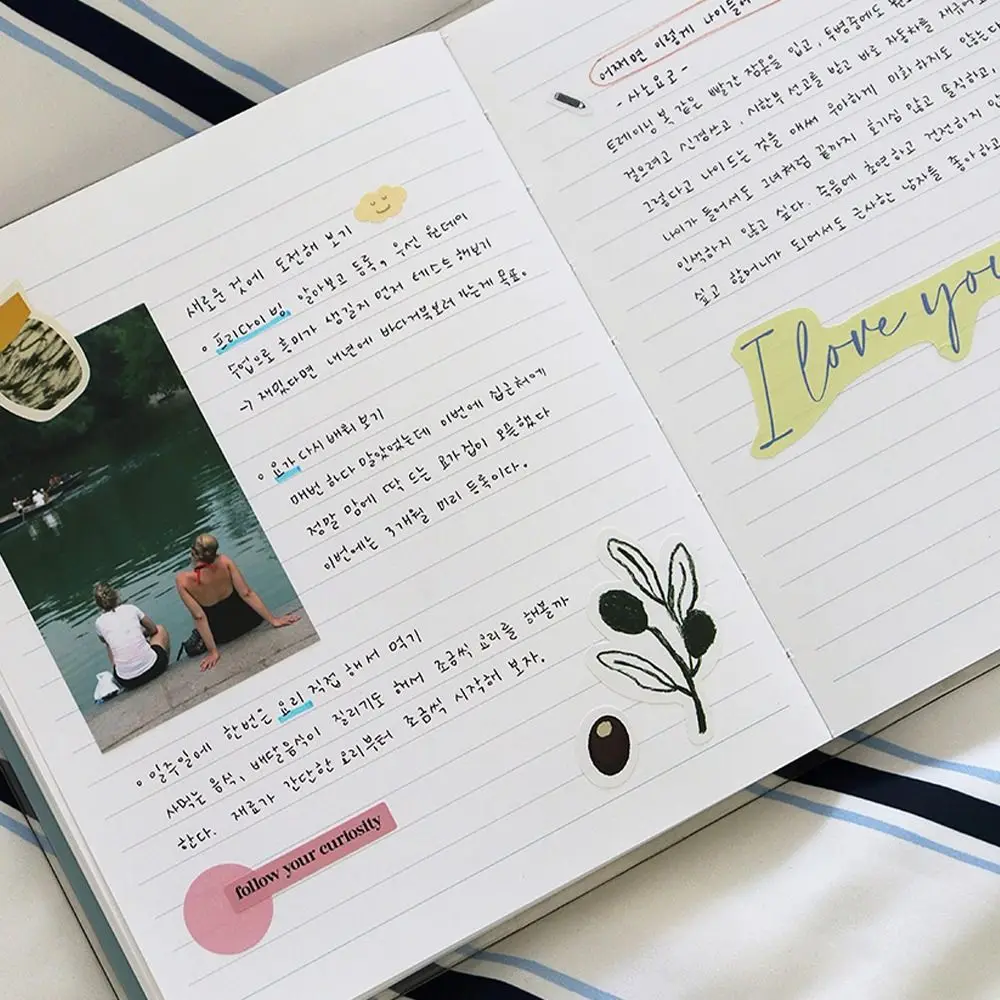 새로운 것에 도전해 보기
프리다이빙 알아보고 등록, 우선 원데이
수업으로 흥미가 생길지 먼저 테스트 해보기
→ 재밌다면 내년에 바다거북보러 가는게 목표.
요가 다시 배워 보기
매번 하다 말았었는데 이번에 집근처에
정말 맘에 딱 드는 요가집이 오픈했다
이번에는 3개월 미리 등록이다.
일주일에 한번은 요리 직접 해서 먹기
사먹는 음식, 배달음식이 질리기도 해서 조금씩 요리를 해볼까
한다. 재료가 간단한 요리부터 조금씩 시작해 보자.
follow your curiosity
어쩌면 이렇게 나이들어
- 사노요코 -
트레이닝 봇 같은 빨간 잠옷을 입고, 투병중에도
걸으려고 신경쓰고, 시한부 선고를 받고 바로 자동차를
그렇다고 나이드는 것을 애써 우아하게 미화하지도 않는다
나이가 들어서도 그녀처럼 끝까지 호기심 많고 솔직하고,
인색하지 않고 싶다. 죽음에 초연하고 경전하지
싶고 할머니가 되어서도 근사한 남자를 좋아하고
I love you